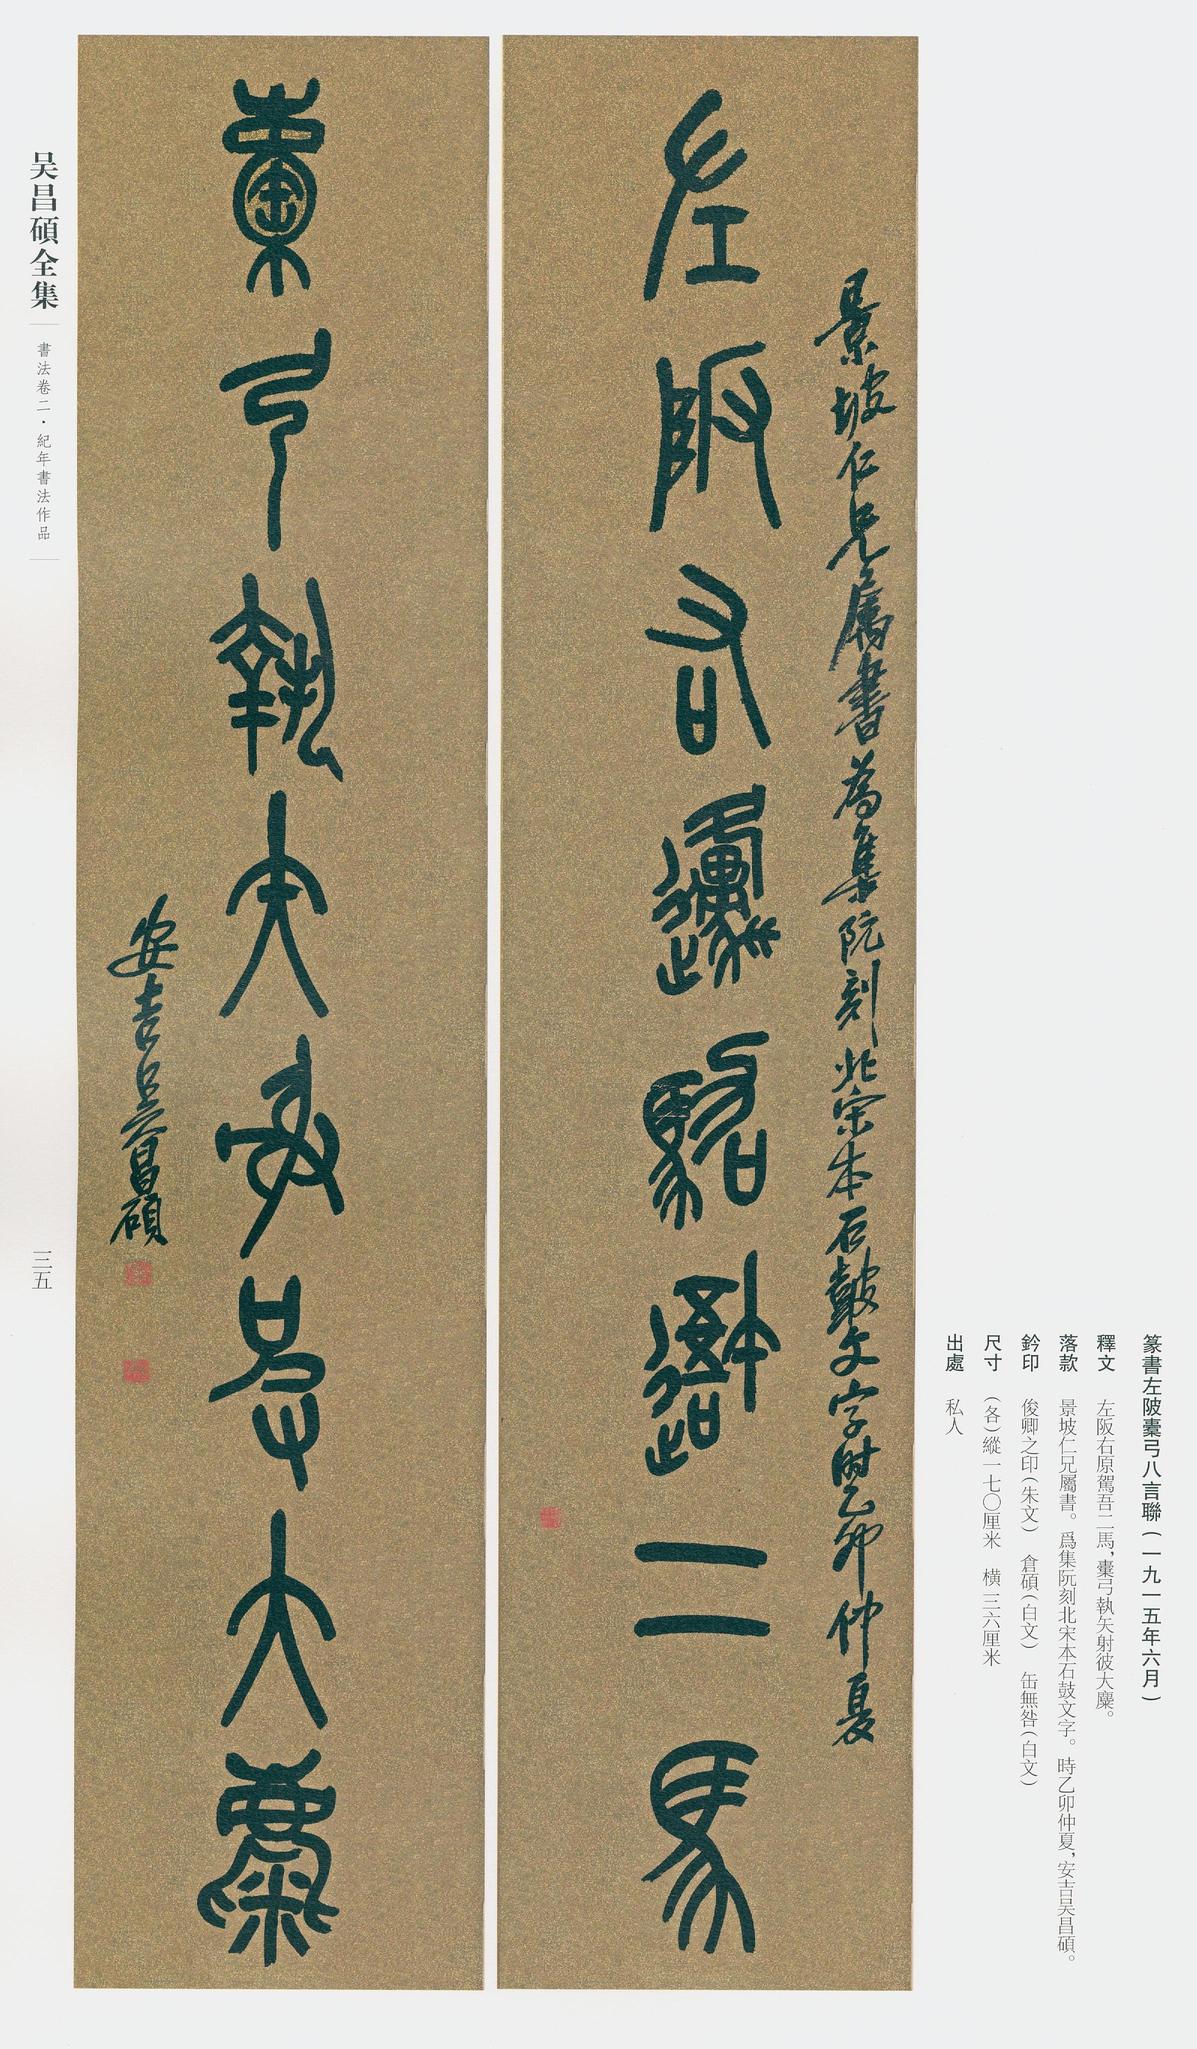 篆書左陂橐弓八言聯（一九一五年六月）
釋文 左阪右原駕吾二馬，橐弓執矢射彼大麋。
落款 景坡仁兄屬書。爲集阮刻北宋本石鼓文字。時乙卯仲夏，安吉吴昌碩。
鈐印 俊卿之印（朱文） 倉碩（白文） 缶無咎（白文）
尺寸 （各）縱一七〇厘米 橫三六厘米
出處 私人
景坡仁兄屬書為集阮刻北宋本石鼓文字時乙卯仲夏
左阪右原駕吾二馬
橐弓執矢射彼大麋
安吉吳昌碩
吴昌碩全集
書法卷二·紀年書法作品
三五